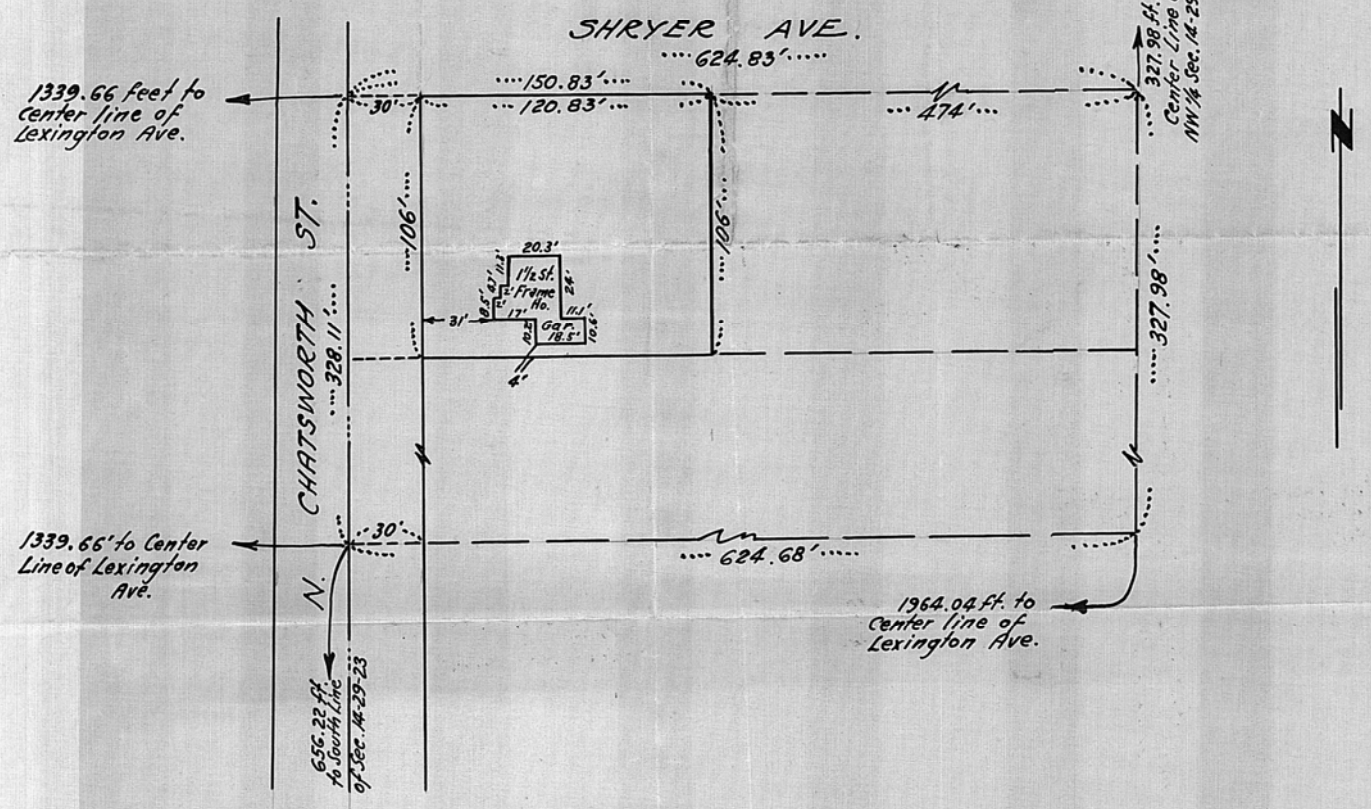 SHRYER AVE.
624.83'
327.98 ft.
Center Line
NW 1/4 Sec. 14-29
1339.66 feet to
Center line of
Lexington Ave.
30'
150.83'
120.83'
474'
N
106'
106'
CHATSWORTH ST.
N.
328.11'
327.98'
20.3'
11.2'
1½ St.
Frame
Ho.
24'
2'
2'
8.5'
17'
11.1'
31'
Gar.
18.5'
10.6'
4'
1339.66' to Center
Line of Lexington
Ave.
30'
624.68'
1964.04 ft. to
Center line of
Lexington Ave.
656.22 ft
to South Line
of Sec. 14-29-23